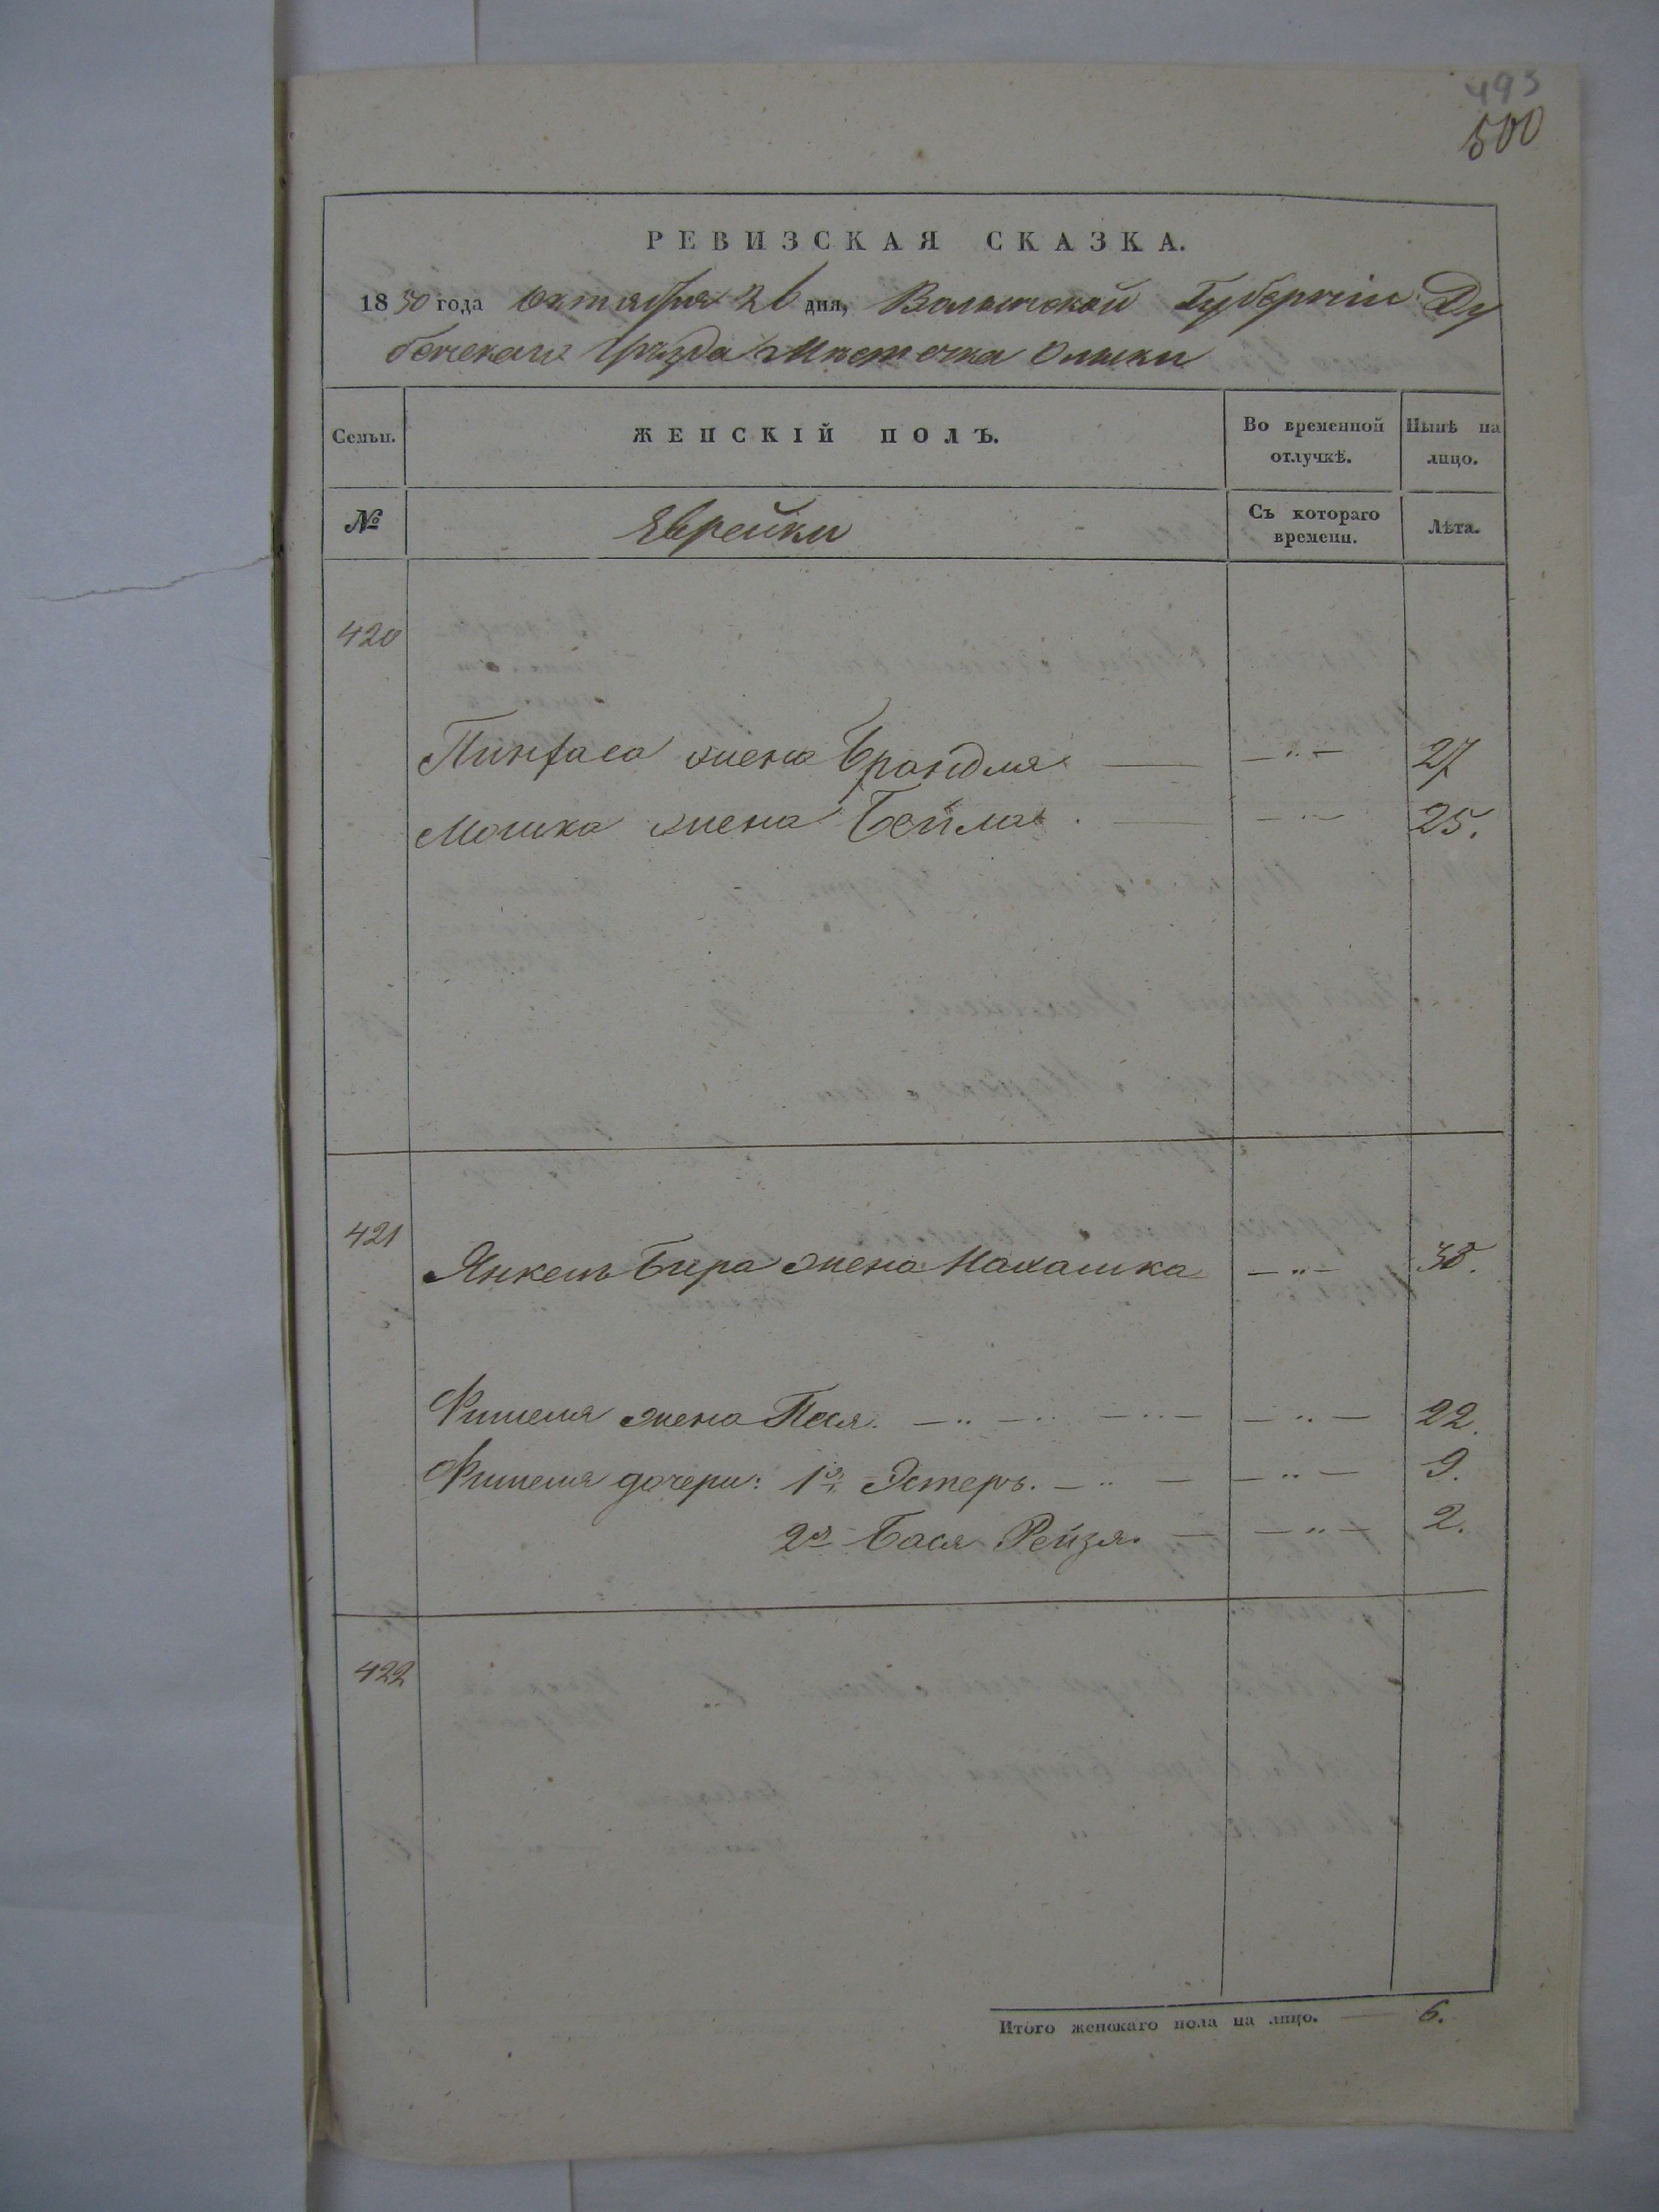 493
500
РЕВИЗСКАЯ СКАЗКА.
1850 года октября 26 дня, Волынской Губернiи Ду
бенскаго Уѣзда Мѣстечка Олыки
Семьи.
ЖЕНСКІЙ ПОЛЪ.
Во временной отлучкѣ.
Нынѣ на лицо.
№
Еврейки
Съ котораго времени.
Лѣта.
420
Пинхаса жена Брандля — — " — 27
Мошка жена Бейла. — — " — 25.
421
Янкель Бера жена Махашка — " — 38.
Фишеля жена Песя. — " — " — " — — " — 22.
Фишеля дочери: 1я Эстеръ. — " — — " — 9.
2я Бася Рейзя. — — " — 2.
422
Итого женскаго пола на лицо. — 6.